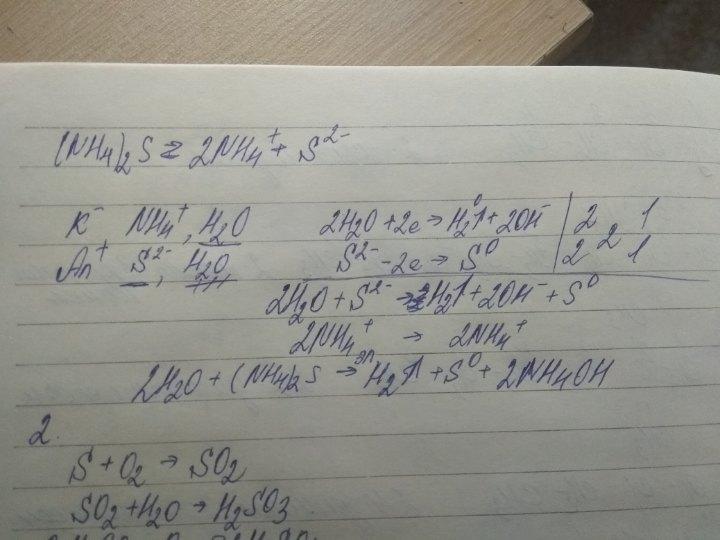 (NH4)2S ⇄ 2NH4⁺ + S²⁻
K⁻ NH4⁺, H2O 2H2O + 2e → H2⁰↑ + 2OH⁻ | 2 1
An⁺ S²⁻, H2O S²⁻ - 2e → S⁰ | 2 2 1
2H2O + S²⁻ → H2↑ + 2OH⁻ + S⁰
2NH4⁺ → 2NH4⁺
2H2O + (NH4)2S эл → H2↑ + S⁰ + 2NH4OH
2.
S + O2 → SO2
SO2 + H2O → H2SO3